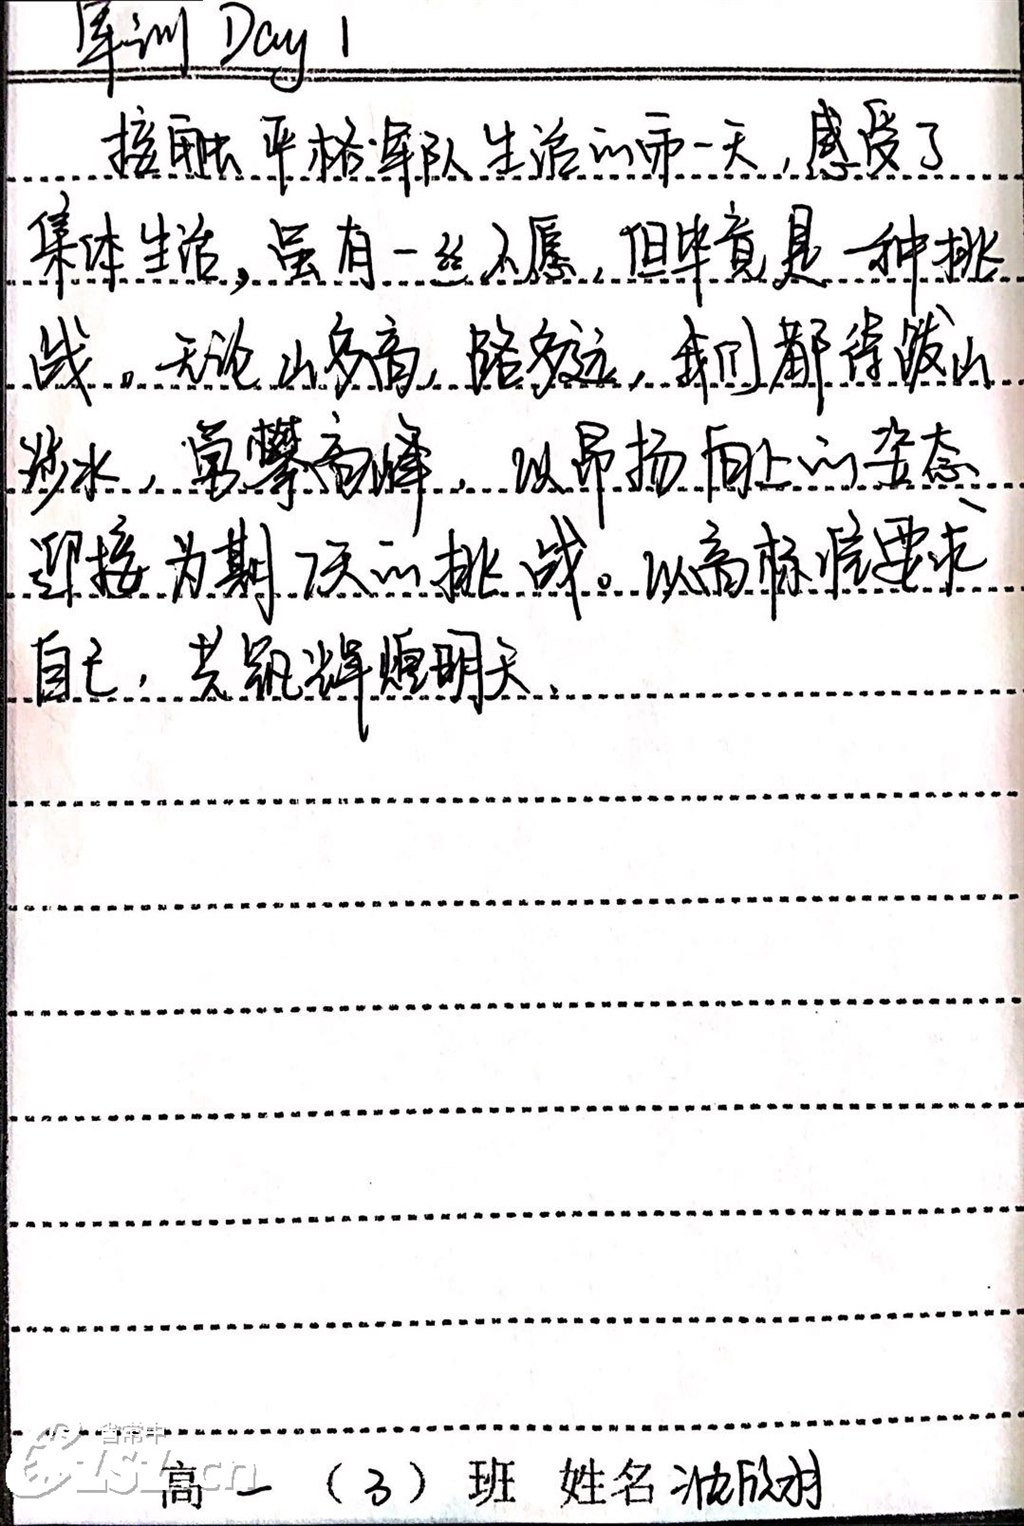 军训 Day 1
接触严格军队生活的第一天，感受了
集体生活，虽有一丝不愿，但毕竟是一种挑
战。无论山多高，路多远，我们都得跋山
涉水，勇攀高峰，以昂扬向上的姿态、
迎接为期7天的挑战。以高标准要求
自己，共筑辉煌明天、
省常中
CZSZ.cn
高一（3）班 姓名 沈欣羽